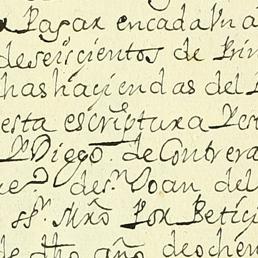 Pagar en cada Un a
de seisçientos de Prin
has haçiendas del
esta escriptura
Diego de Contrera
de sn Joan del
ssr. Mro Por Petiçi
de dho año de ochen